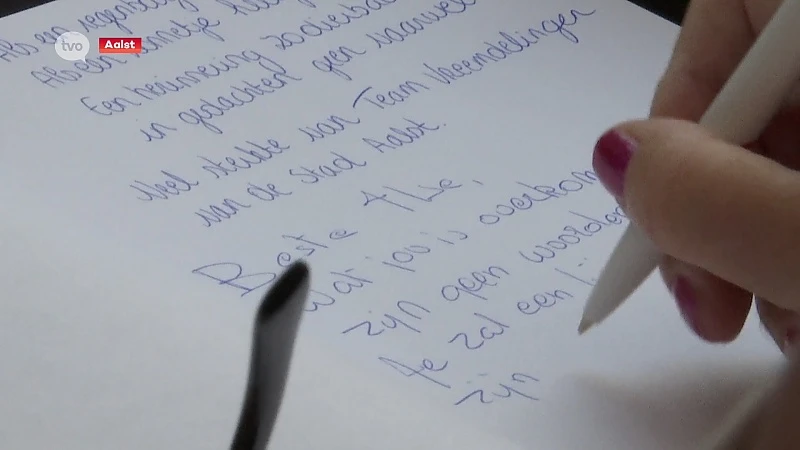 tvo
Aalst
Als een regenboog
Als een
Een herinnering zo dierbaar
in gedachten geen vaarwel
Veel sterkte van Team Vreemdelingen
van de stad Aalst.
Beste
Wat jou is overkom
zijn geen woorden
Je zal een
zijn